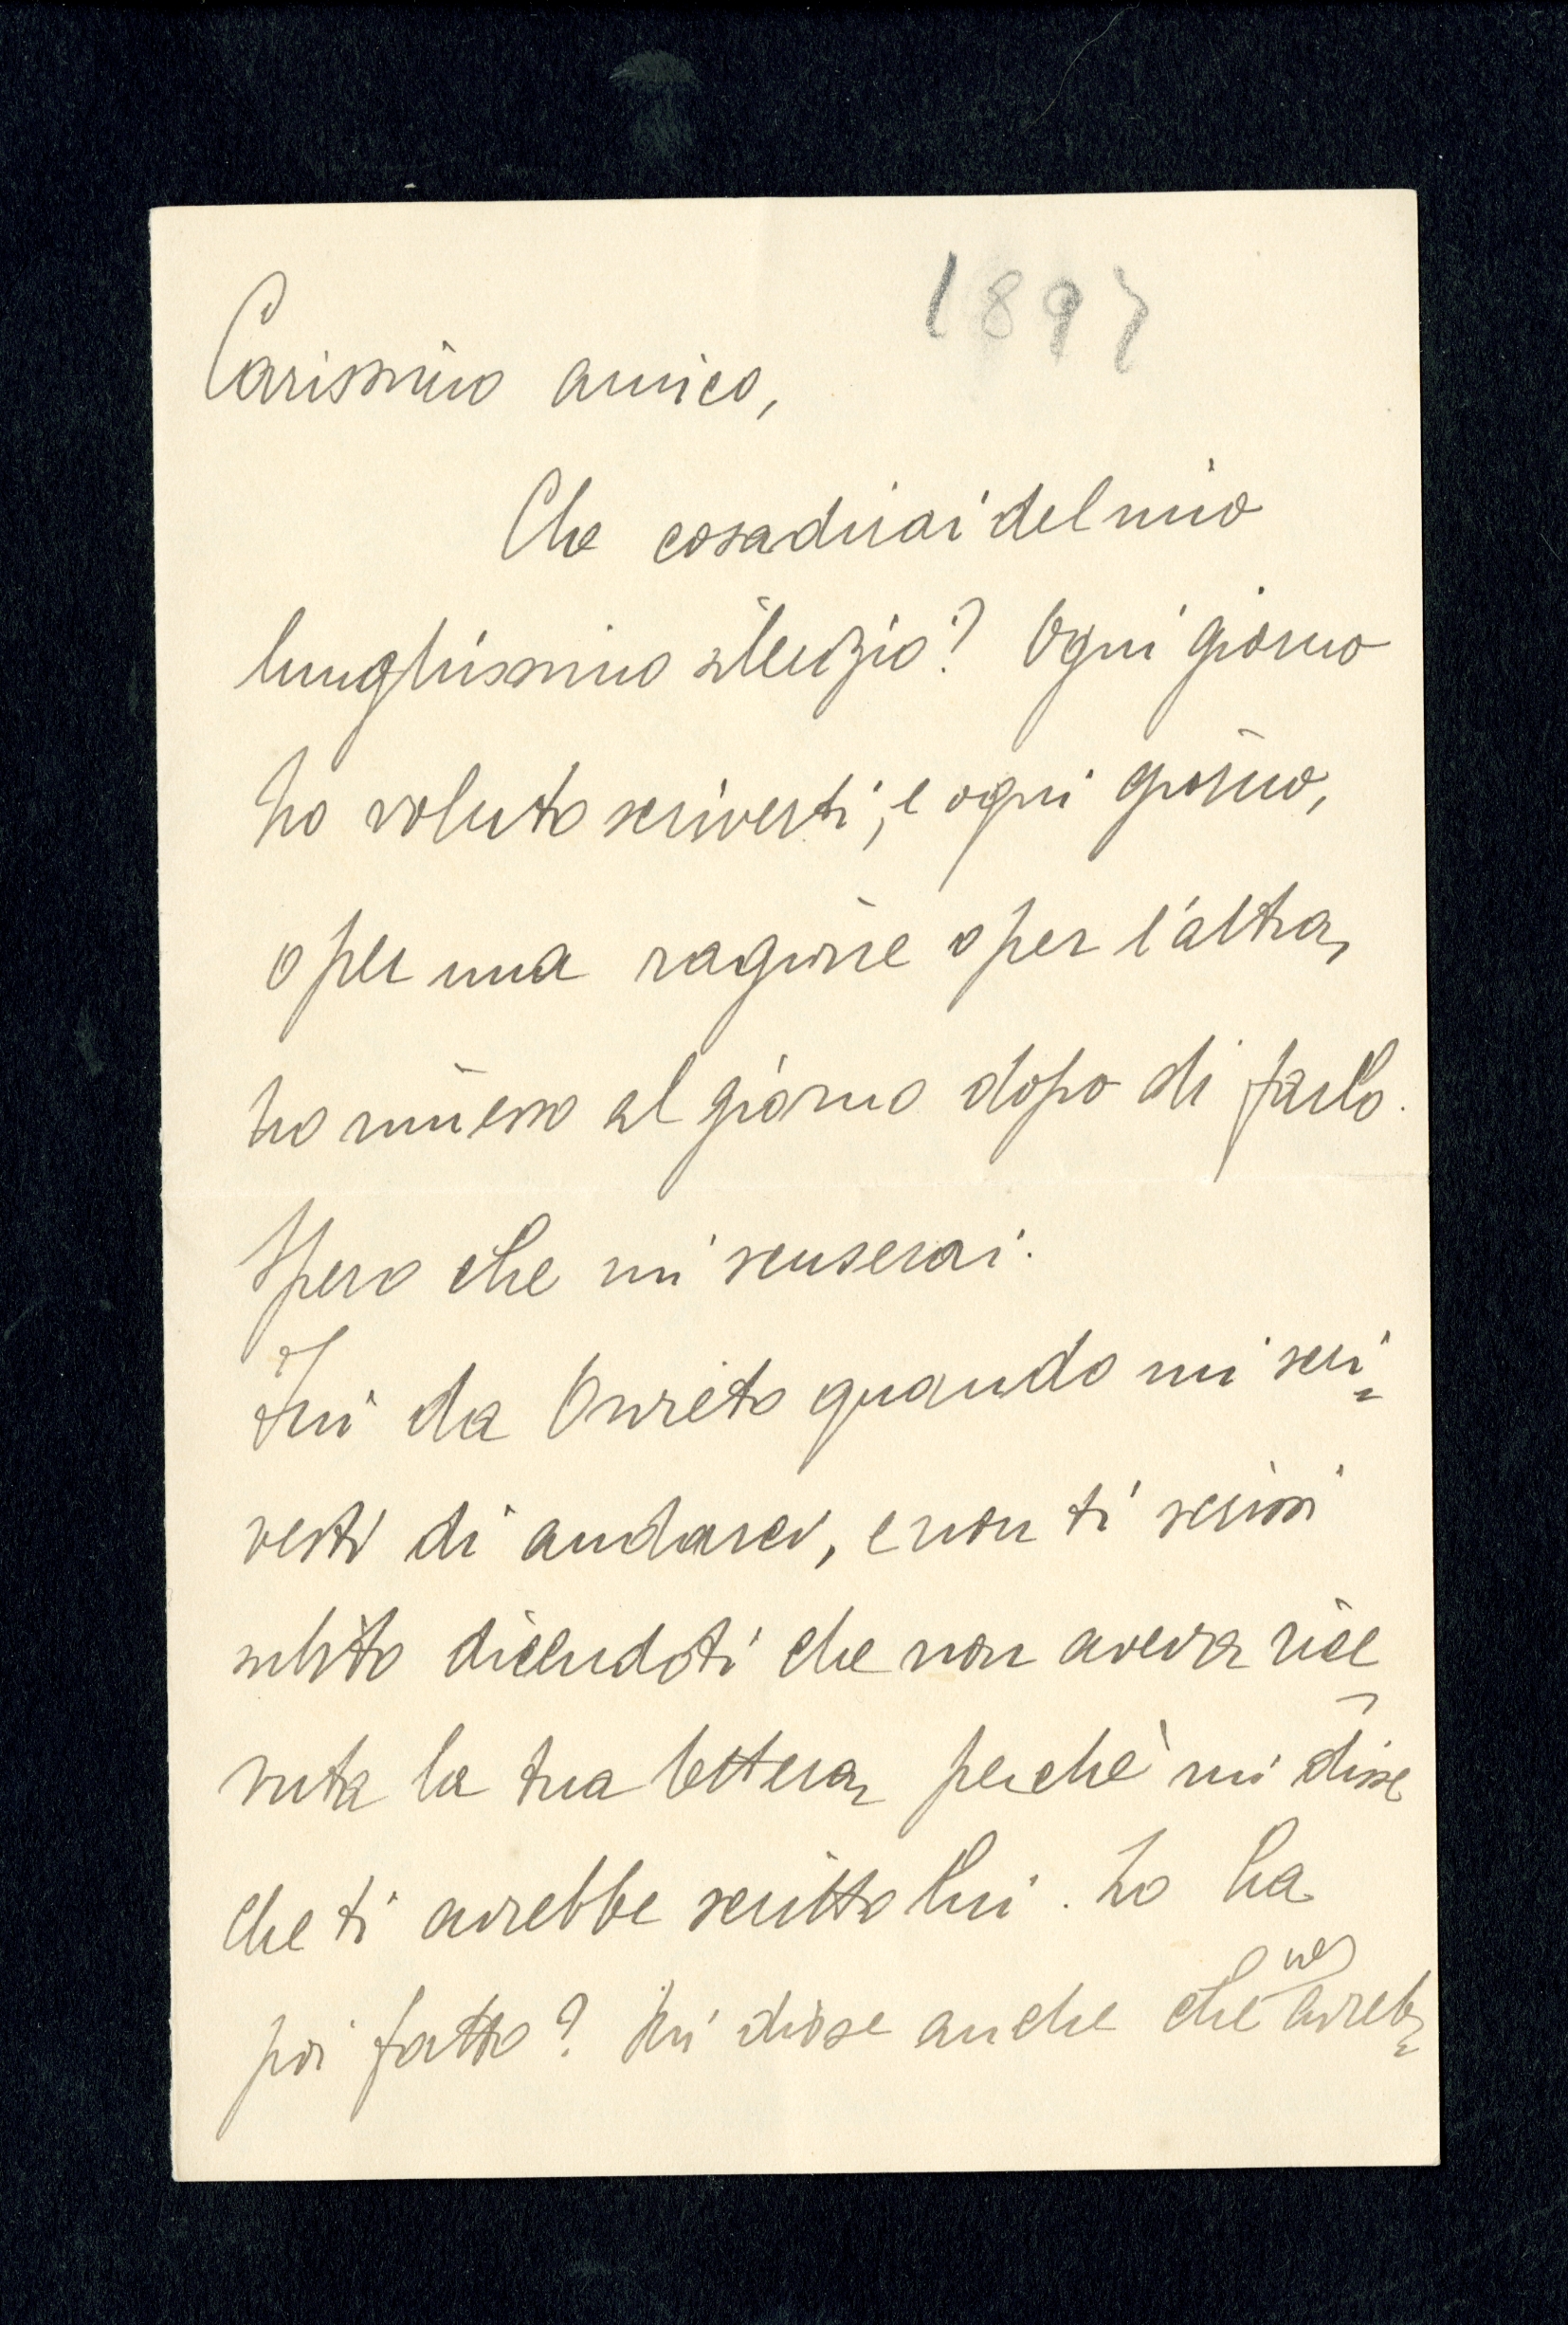 1897
Carissimo amico,
Che cosa dirai del mio
lunghissimo silenzio? Ogni giorno
ho voluto scriverti, e ogni giorno,
o per una ragione o per l'altra,
ho rimesso al giorno dopo di farlo.
Spero che mi scuserai.
Fui da Onvieto quando mi scri=
vesti di andarci, e non ti scrissi
subito dicendoti che non aveva rice
vuta la tua lettera, perchè mi disse
che ti avrebbe scritto lui. Lo ha
poi fatto? Mi disse anche che ne avreb=